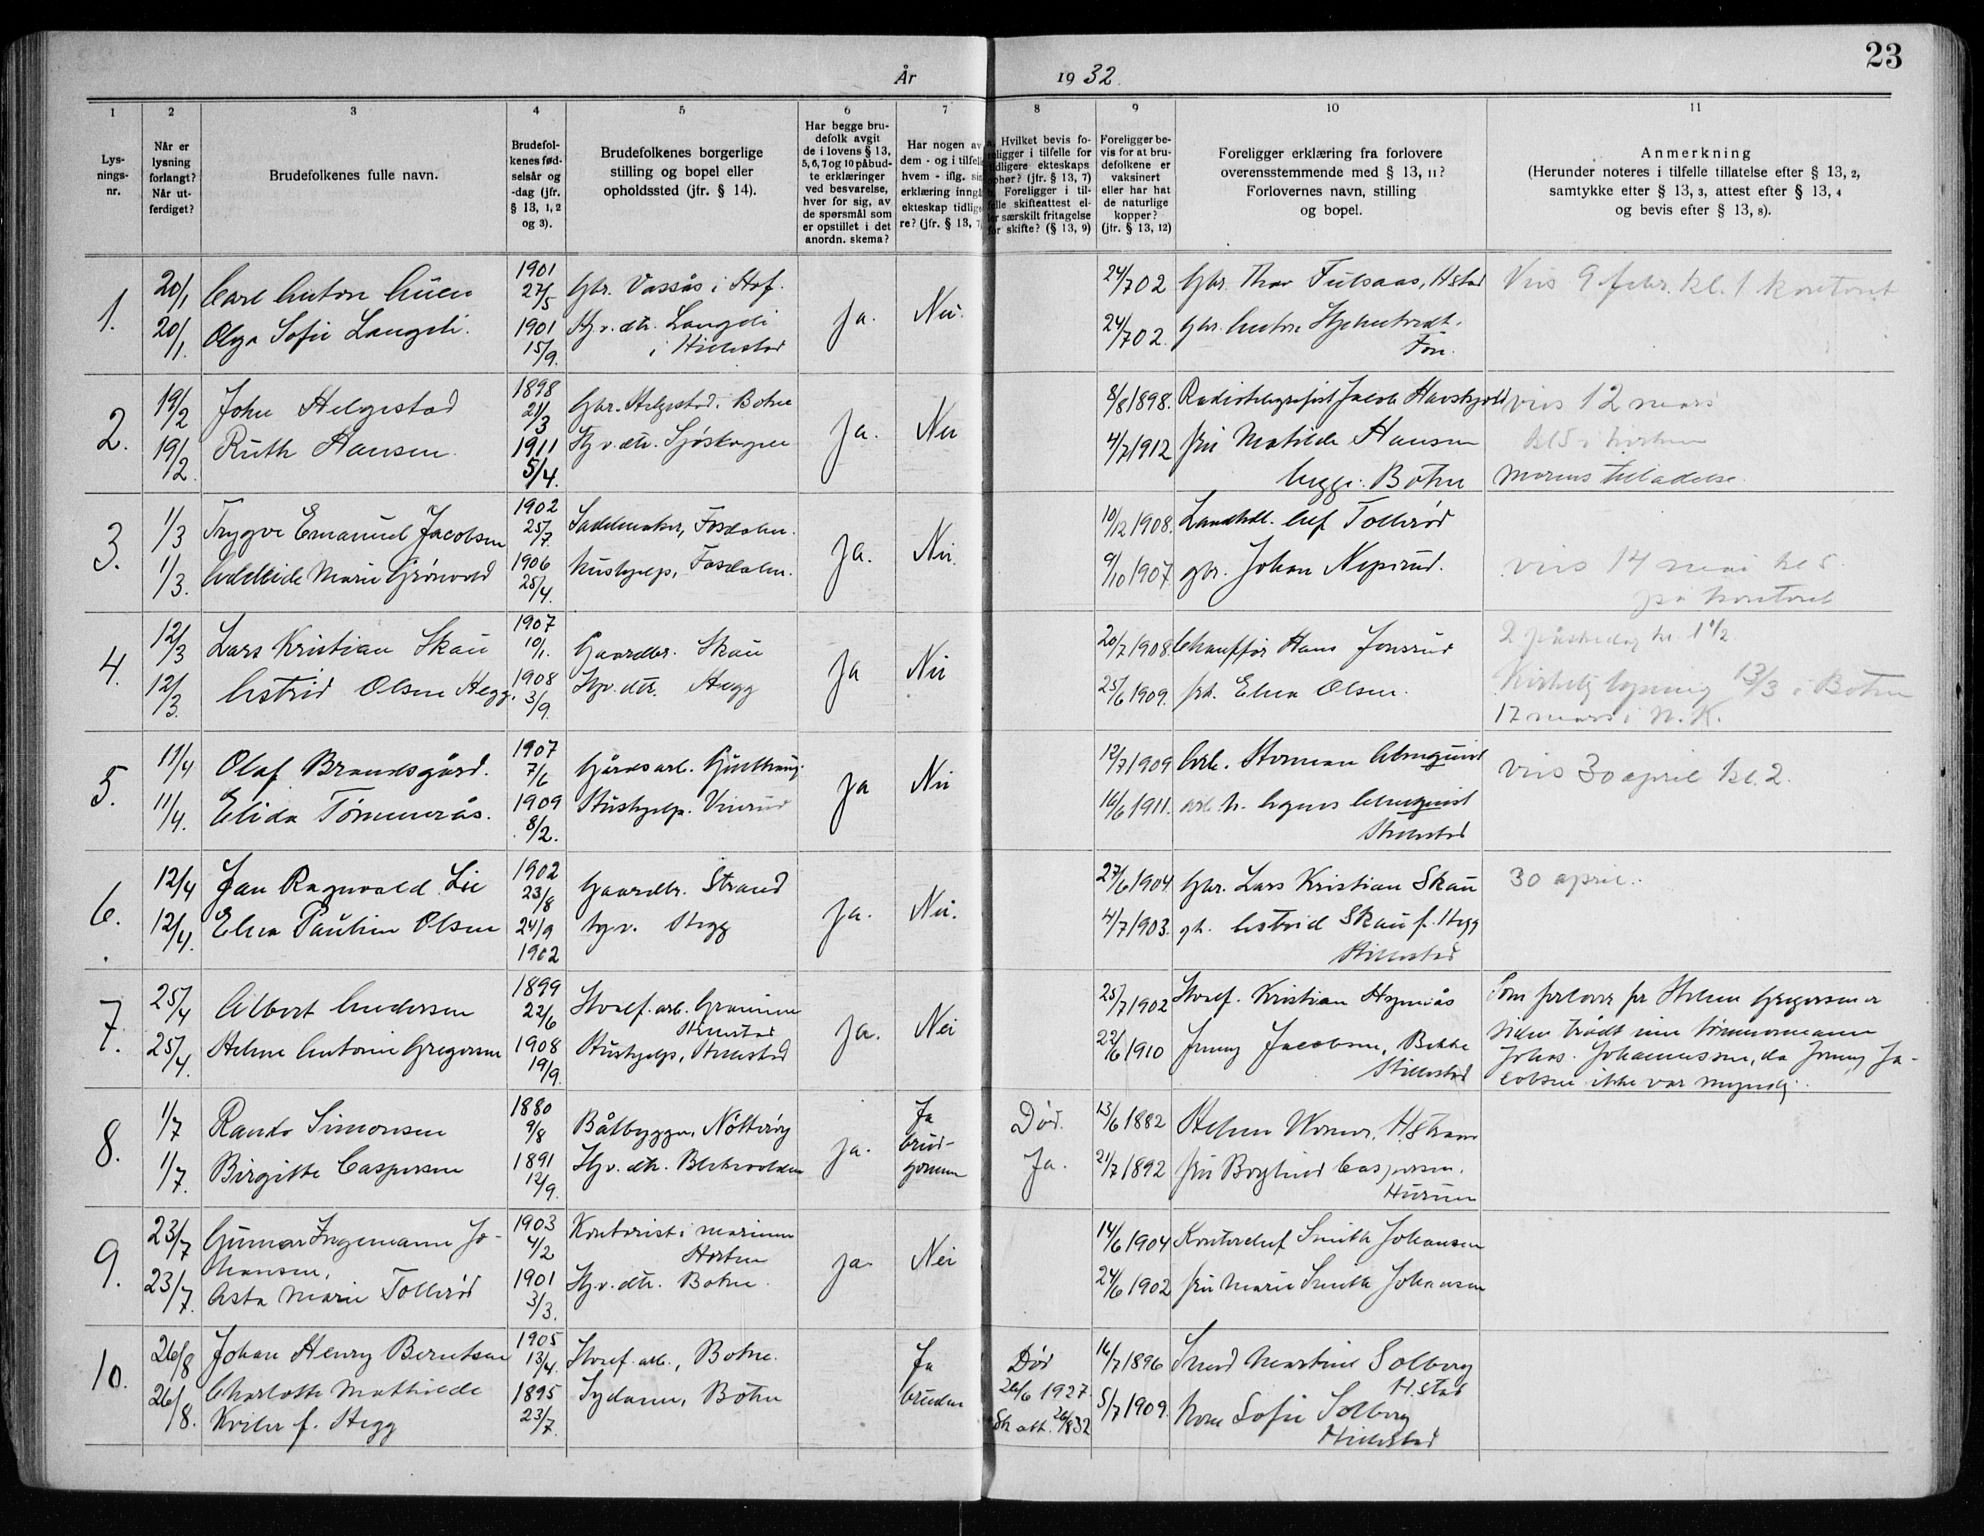 23
År 1932.
1 2 3 4 5 6 7 8 9 10 11
Lys-
nings-
nr.
Når er
lysning
forlangt?
Når ut-
ferdiget?
Brudefolkenes fulle navn.
Brudefol-
kenes fød-
selsår og
-dag (jfr.
§ 13, 1, 2
og 3).
Brudefolkenes borgerlige
stilling og bopel eller
opholdssted (jfr. § 14).
Har begge bru-
defolk avgit
de i lovens § 13,
5, 6, 7 og 10 påbud-
te erklæringer
ved besvarelse,
hver for sig, av
de spørsmål som
er opstillet i det
anordn. skema?
Har nogen av
dem - og i tilfelle
hvem - iflg. sin
erklæring inngå
ekteskap tidlige
re? (jfr. § 13, 7)
Hvilket bevis fo-
religger i tilfelle for
tidligere ekteskaps
ophør? (jfr. § 13, 7)
Foreligger i til-
felle skifteattest el-
ler særskilt fritagelse
for skifte? (§ 13, 9)
Foreligger be-
vis for at bru-
defolkene er
vaksinert
eller har hat
de naturlige
kopper?
(jfr. § 13, 12)
Foreligger erklæring fra forlovere
overensstemmende med § 13, 11?
Forlovernes navn, stilling
og bopel.
Anmerkning
(Herunder noteres i tilfelle tillatelse efter § 13, 2,
samtykke efter § 13, 3, attest efter § 13, 4
og bevis efter § 13, 8).
1. 20/1 Carl Anton 1901 27/5 Gbr. Vassås i Hof. Ja. Nei. 24/7 02 Gbr. Thor Fulsaas, H.stad Vies 9 febr. kl. 1 kontoret
20/1 Olga Sofie Langeli. 1901 15/9. Hjv. dtr. Langeli 24/7 02. Gbr. Anton
i Hillestad Fon.
2. 19/2 John Helgestad 1898 21/3 Gbr. Helgestad, Botne Ja. Nei 8/8 1898. Radiotelegrafist Jacob vies 12 mars
19/2 Ruth Hansen. 1911 5/4. Hjv. dtr. Sjøskogen 4/7 1912 fru Matilde Hansen kl 5 i kirken
begge: Botne Morens tilladelse.
3. 1/3 Trygve Emanuel Jacobsen 1902 25/7. Sadelmaker, Fosdalen. Ja. Nei. 10/12 1908. Landhdl. Tollerød
1/3. Adelheide Marie Grönvold 1906 25/4. Hushjelp, Fosdalen. 9/10 1907. gbr. Johan Neperud. vies 14 mai kl 5.
på kontoret
4. 12/3 Lars Kristian Skau 1907 10/1. Gaardbr. Skau Ja Nei 20/7 1908. Chauffør Hans Jonsrud 2 påskedag kl. 1 1/2
12/3. Astrid Olsen Hegg. 1908 3/9. Hjv. dtr. Hegg 25/6 1909. frk. Elna Olsen. Kirkelig lysning 13/3 i Botne
17 mars i N. K.
5. 11/4 Olaf Brandsgård. 1907 7/6 Gårdsarb. Ja Nei 12/7 1909 Arb. Herman Almquist vies 30 april kl. 2.
11/4. Elida Tømmerås. 1909 8/2. Hushjelp. Vinrud 16/6 1911. arb. h. Agnes Almquist
Hillestad
6. 12/4 Jan Ragnvald Lie 1902 23/8 Gaardbr. Strand Ja. Nei. 27/6 1904. Gbr. Lars Kristian Skau 30 april.
12/4. Elna Pauline Olsen 24/9 1902 hjv. Hegg 4/7 1903. gh. Astrid Skau f. Hegg
Hillestad
7. 25/4 Albert Andersen 1899 22/6 Hvalf. arb. Hillestad Ja. Nei 25/7 1902 Hvalf. Kristian Som forlover for Helene Gregersen er
25/4. Helene Antonie Gregersen 1908 19/9. Hushjelp, Hillestad 22/6 1910 Jenny Jacobsen, Bakke siden trådt inn tømmermann
Hillestad Johs. Johannessen, da Jenny Ja-
cobsen ikke var myndig.
8. 1/7 Rando Simonsen 1880 9/8 Båtbygger, Nötteröy Ja. Ja brud- Død. 13/6 1882 Helene
1/7. Birgitte Caspersen 1891 12/9. Hjv. dtr. gommen Ja. 21/7 1892 fru Caspersen.
Hurum
9. 23/7 Gunnar Ingemann Jo- 1903 4/2 Kontorist i marinen Ja. Nei 14/6 1904 Kontorchef Smith Johansen
hansen, Horten
23/7. Asta Marie Tollerød 1901 3/3. Hjv. dtr. Botne. 24/6 1902 fru Marie Smith Johansen
10. 26/8 Johan Henry Berntsen 1905 13/4. Hvalf. arb., Botne. Ja Død 16/7 1896 Smed Martin Solberg
H.stad
26/8. Charlotte Mathilde 1895 23/7. Sydame, Botne bruden 26/6 1927. 5/7 1909. Kone Sofie Solberg
f. Hegg Sk. att. 26/8 32 Hillestad